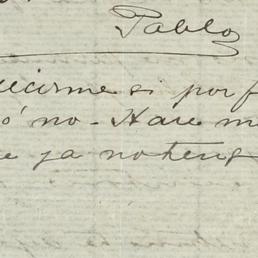 Pablo
decirme si por f
ó no - Hace m
e ya no teng